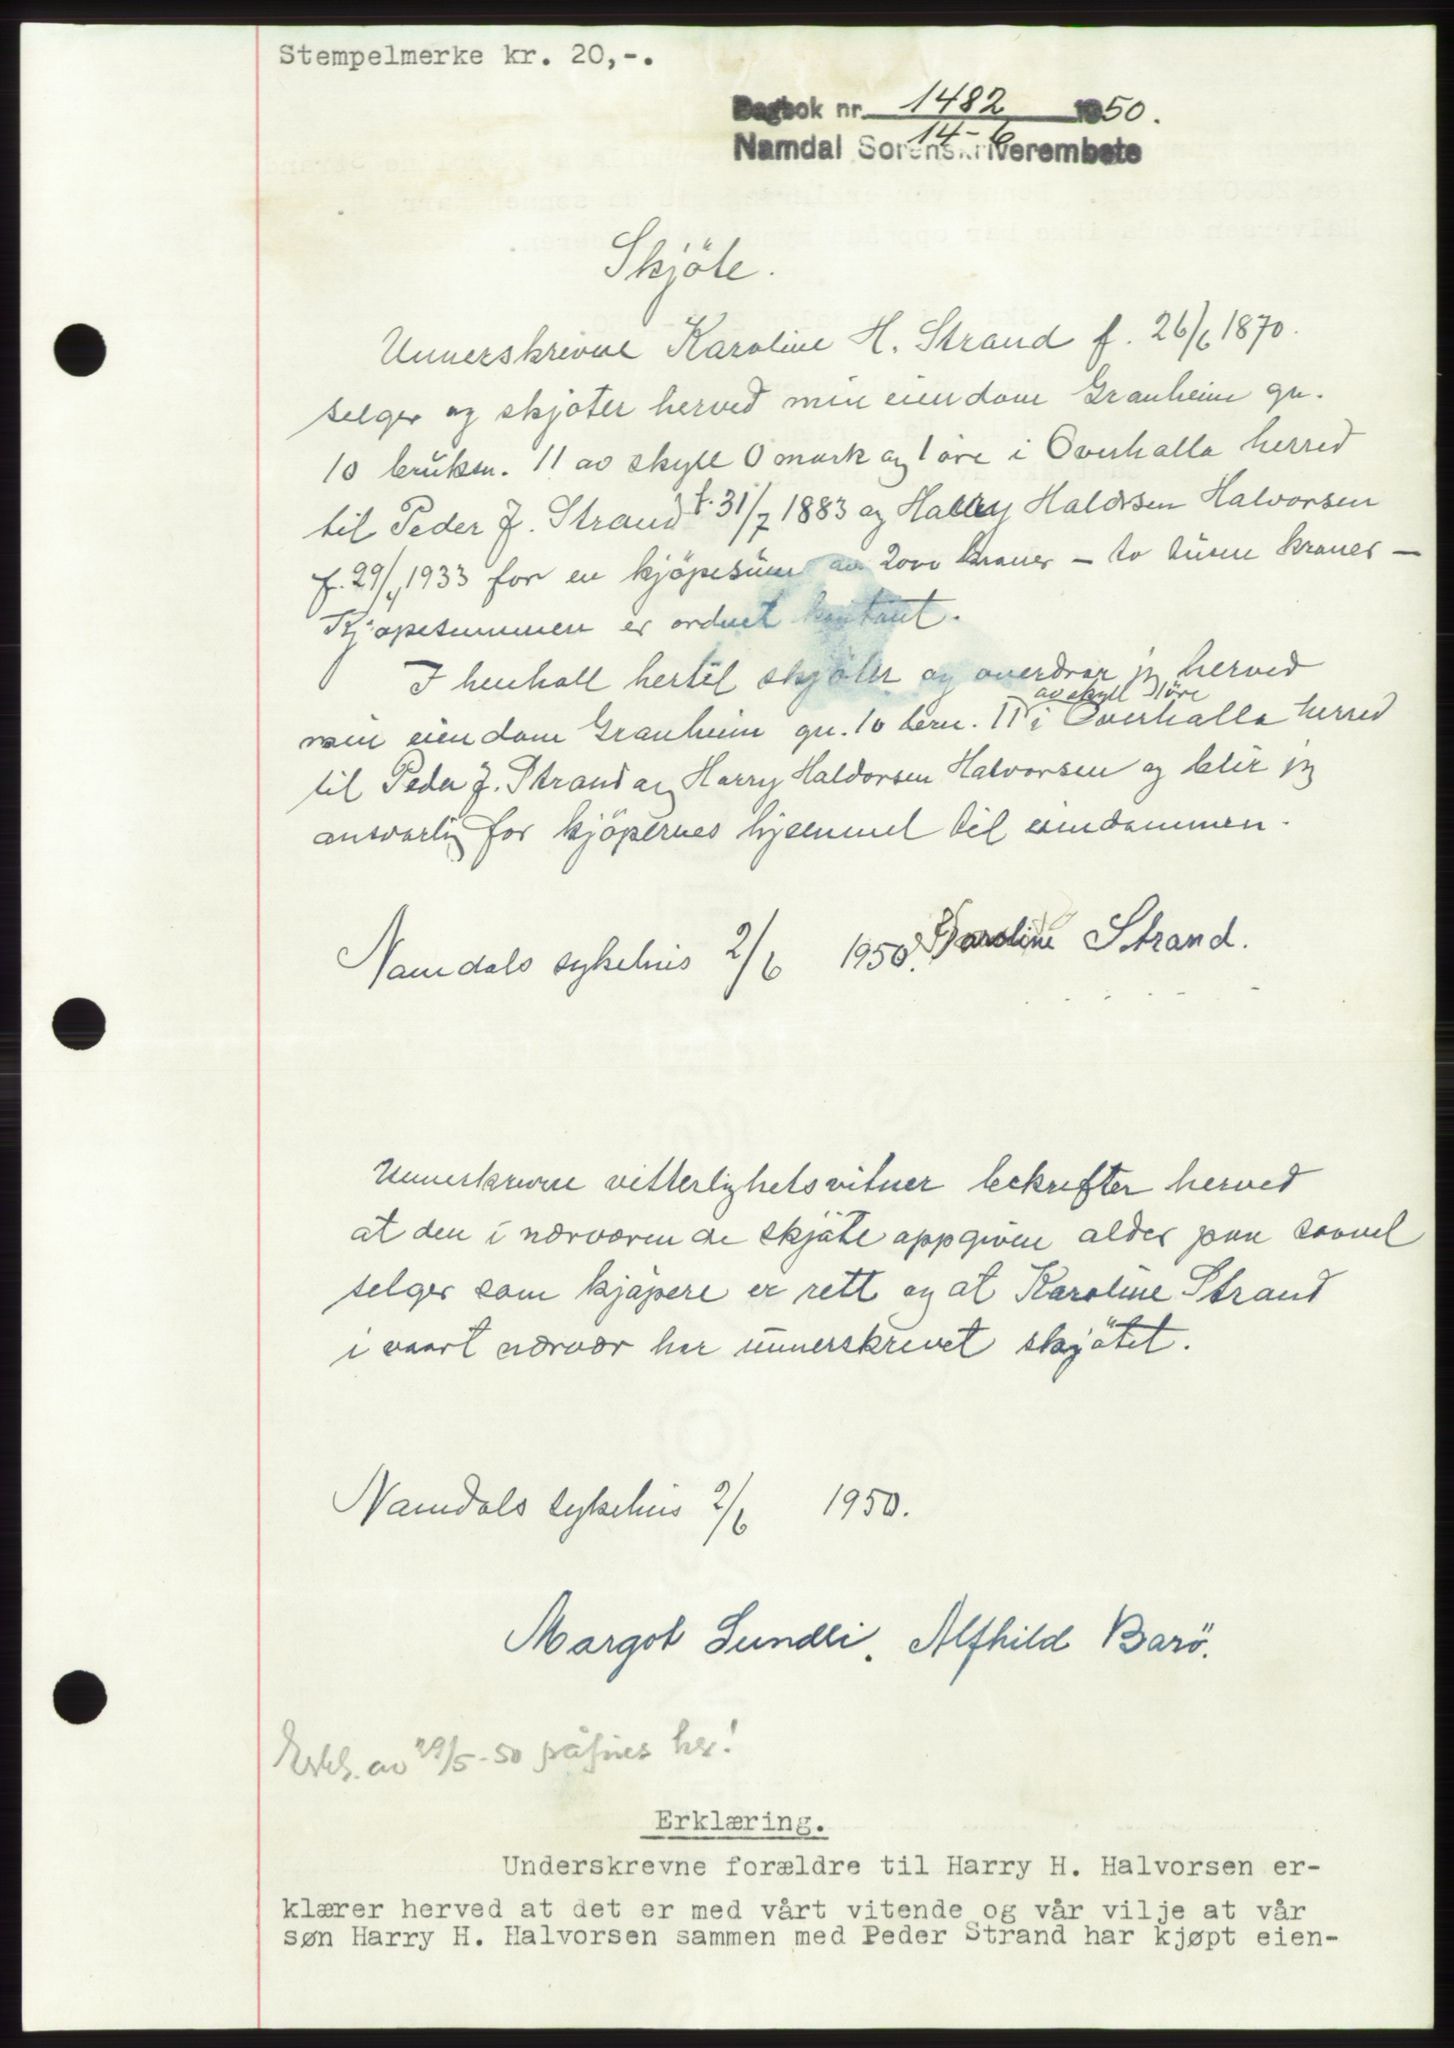 Stempelmerke kr. 20,-.
Dagbok nr. 1482 1950.
14-6
Namdal Sorenskriverembete
Skjöte.
Unnerskrivne Karoline H. Strand f. 26/6 1870.
selger og skjøter herved min eiendom Granheim gn.
10 bruksn. 11 av skyll 0 mark og 1 øre i Overhalla herred
til Peder J. Strand f. 31/7 1883 og Harry Haldorsen Halvorsen
f. 29/4 1933 for en kjöpesum av 2000 kroner - to tusen kroner -
Kjøpesummen er ordnet kontant.
I henholl hertil skjöter og overdrar jeg herved
av skyll 1 öre
min eiendom Granheim gn. 10 brn. 11 i Overhalla herred
til Peder J. Strand og Harry Haldorsen Halvorsen og blir jeg
ansvarlig for kjöpernes hjemmel til eiendommen.
Namdals sykehus 2/6 1950. Karoline Strand.
Unnerskrivne vitterlighetsvitner bekrefter herved
at den i nærværende skjöte oppgivne alder paa saavel
selger som kjöpere er rett og at Karoline Strand
i vaart nærvær har unnerskrevet skjötet.
Namdals sykehus 2/6 1950.
Margot Sundli. Alfhild Barö.
Erkl. av 29/5-50 påfues her!
Erklæring.
Underskrevne forældre til Harry H. Halvorsen er-
klærer herved at det er med vårt vitende og vår vilje at vår
søn Harry H. Halvorsen sammen med Peder Strand har kjøpt eien-